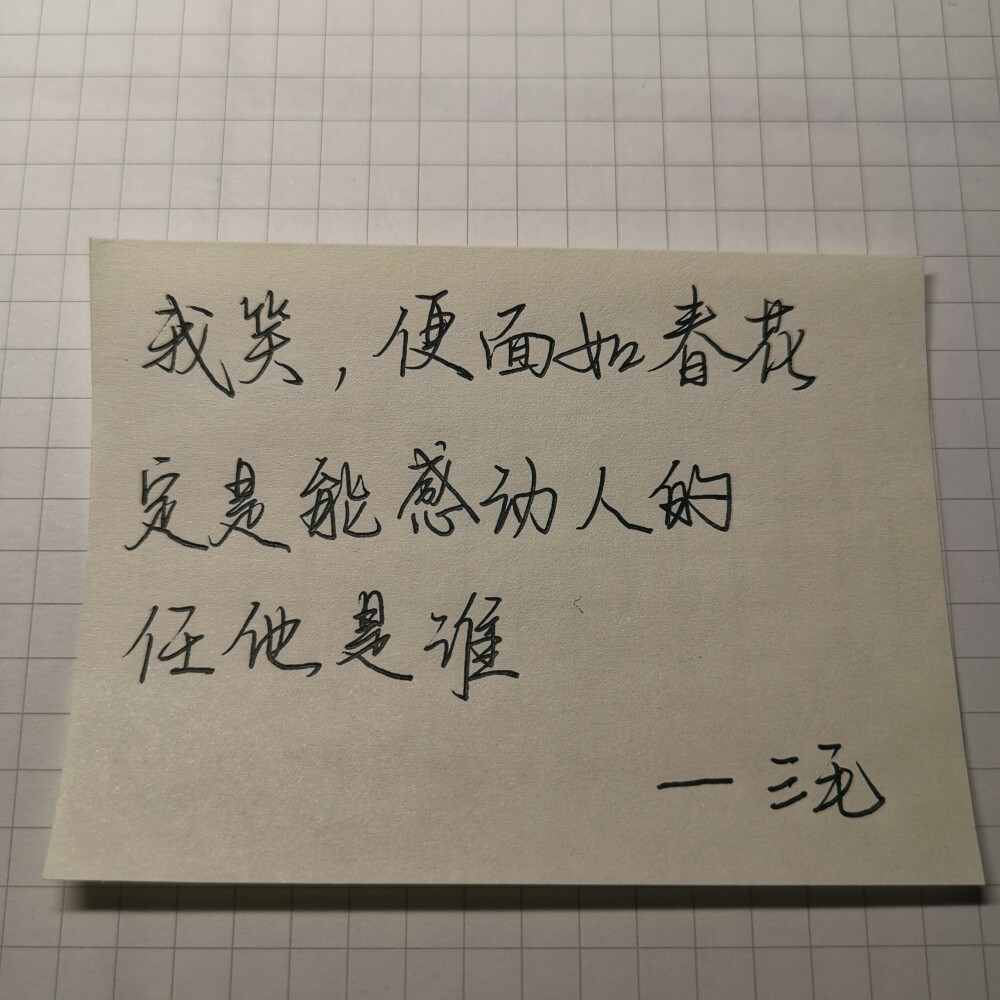 我笑，便面如春花
定是能感动人的
任他是谁
— 三毛